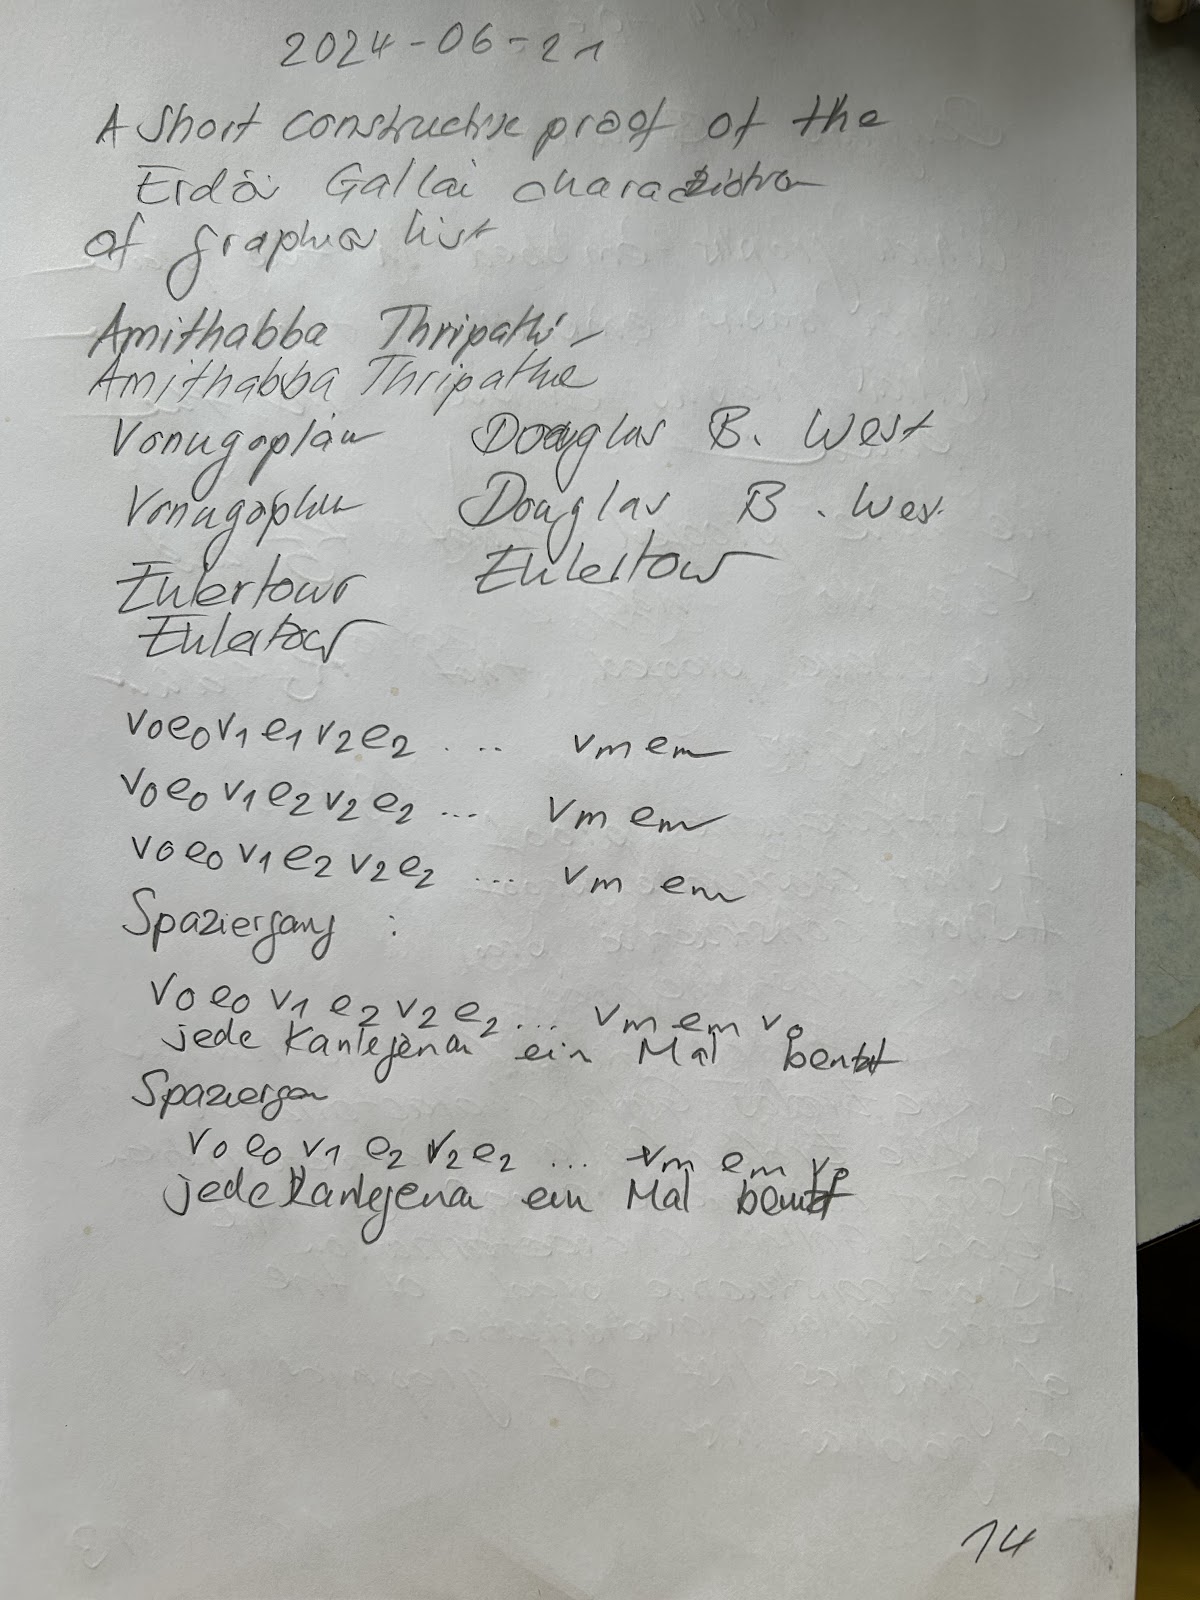 2024-06-21
A Short constructive proof of the
Erdöi Gallai
of list
Amithabba Thripathi
Amithabba Thripathie
Vonugoplan Douglas B. West
Vonugoplan Douglas B. Wes.
Eulertour Eulertour
Eulertour
v0e0v1e1v2e2 ... vm em
v0e0v1e2v2e2 ... vm em
v0e0v1e2v2e2 ... vm em
Spaziergang :
v0 e0 v1 e2 v2 e2 ... vm em v0
jede ein Mal
Spaziergan
v0 e0 v1 e2 v2 e2 ... vm em v0
jede ein Mal
14